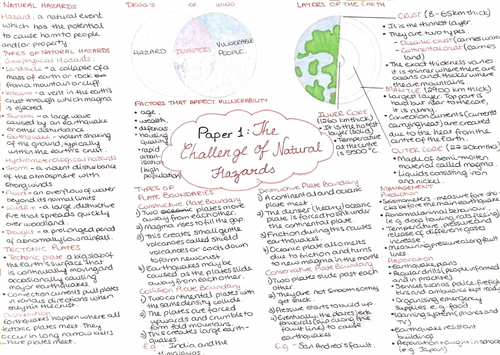 NATURAL HAZARDS
Hazard: a natural event
which has the potential
to cause harm to people
and/or property.
TYPES OF NATURAL HAZARDS
Geophysical Hazards:
Landslide - a collapse of a
mass of earth or rock from
a mountain or cliff.
Volcano - a vent in the earth's
crust through which magma
is ejected.
Tsunami - a large wave
caused by an earthquake
or other disturbance.
Earthquake - violent shaking
of the ground, typically
within the earth's crust.
Hydrometeorological Hazards
Storm - a violent disturbance
of the atmosphere with
strong winds.
Flood - an overflow of water
beyond its normal limits.
Wildfire - a large destructive
fire that spreads quickly
over woodland.
Drought - a prolonged period
of abnormally low rainfall.
TECTONIC PLATES
Tectonic plate - a big slab of
the Earth's surface that
is continually moving and
occasionally causing
major earthquakes
Convection currents pull plates
in various directions when
they hit the crust
Distribution
Earthquakes happen where all
tectonic plates meet. They
occur in long narrow belts
where plates meet.
HAZARD
DISASTERS
VULNERABLE
PEOPLE
FACTORS THAT AFFECT VULNERABILITY
age
wealth
defences
housing
quality
rapid
urban-
isation
(high
population)
Paper 1: The
Challenge of Natural
Hazards
TYPES OF
PLATE BOUNDARIES
Constructive Plate Boundary
1) Two plates move
away from each other.
2) Magma rises to fill the gap
3) This creates small, gentle
volcanoes called shield
volcanoes or cools down
to form new crust
4) Earthquakes may be
caused as the plates slide
away from each other.
Collision Plate Boundary
1) Two continental plates with
the same density collide
2) The plates are forced
upwards and crumble to
form fold mountains.
3) This creates large earth-
quakes.
E.g. India and the
Himalayas.
LAYERS OF THE EARTH
CRUST (8-65km thick)
It is the thinnest layer.
They are two types
Oceanic crust (carries water)
Continental crust (carries
land)
The exact thickness varies
it is thinner where there are
oceans and thicker where
there are mountains.
MANTLE (2900 km thick)
Largest layer. Top part is
solid but near to the core,
it is runny.
Convection currents (currents
carrying heat) are created
due to the heat from the
centre of the earth.
OUTER CORE
Made of semi-molten
material called magma.
Consisting liquid iron
and nickel.
INNER CORE
It is the hottest
layer (solid)
Temperature
at the centre
is 5500°C
Destructive Plate Boundary
1) A continental and oceanic
plate meet
2) The denser (heavy) oceanic
plate is forced to sink under
the continental plate
3) Friction during this causes
earthquakes
4) Oceanic plate also melts
due to friction and turns
to new magma in the mantle
Conservative Plate Boundary
1) Two plates slide past each
other.
2) They are not smooth so they
get stuck.
3) Pressure starts to build up
4) Eventually, the plates jerk
forward (along
fault line) to cause
earthquakes.
E.g. - San Andreas fault.
MANAGEMENT
Prediction
Abnormal animal behaviour
like dogs howling, rats fleeing
Preparation
Emergency plans